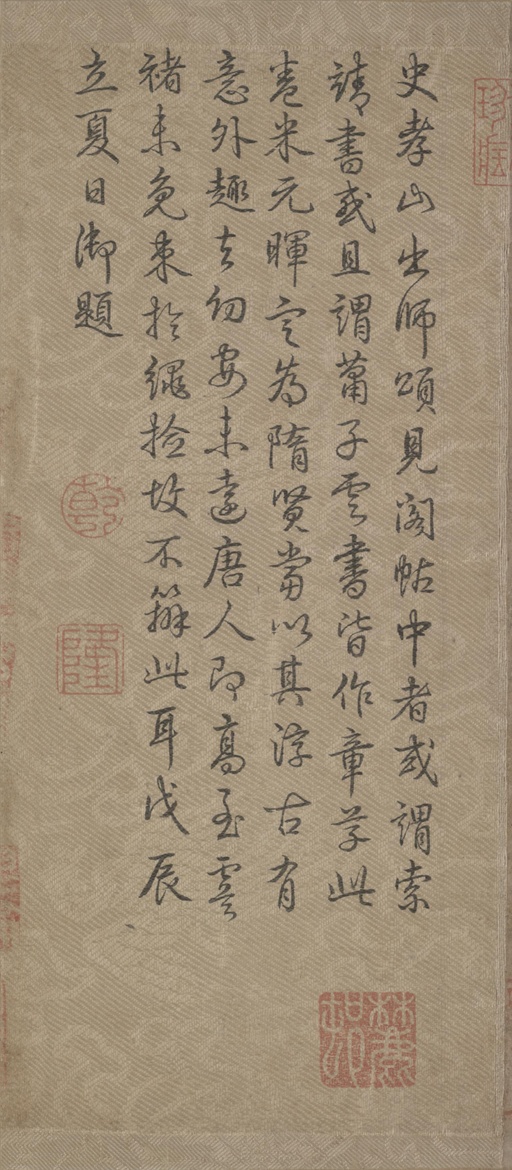 史孝山出師頌見閣帖中者或謂索
靖書或且謂蕭子雲書皆作章草此
卷米元暉定為隋賢當以其淳古有
意外趣去幼安未遠唐人即高至虞
褚未免束扵繩撿故不辦此耳戊辰
立夏日御題
乾
隆